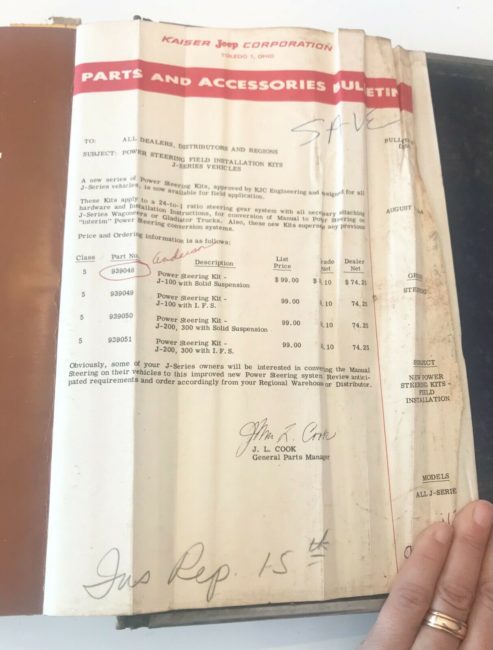 KAISER Jeep CORPORATION
TOLEDO 1, OHIO
PARTS AND ACCESSORIES BULLETIN
SAVE
TO: ALL DEALERS, DISTRIBUTORS AND REGIONS
SUBJECT: POWER STEERING FIELD INSTALLATION KITS
J-SERIES VEHICLES
A new series of Power Steering Kits, approved by KJC Engineering and designed for all
J-Series vehicles, is now available for field application.
These Kits apply to a 24-to-1 ratio steering gear system with all necessary attaching
hardware and Installation Instructions, for conversion of Manual to Power Steering on
J-Series Wagoneers or Gladiator Trucks. Also, these new Kits supersede any previous
"interim" Power Steering conversion systems.
Price and Ordering information is as follows:
Class Part No. Description List Price Net Dealer Net
5 939048 Power Steering Kit - J-100 with Solid Suspension $ 99.00 .10 $ 74.25
5 939049 Power Steering Kit - J-100 with I. F. S. 99.00 .10 74.25
5 939050 Power Steering Kit - J-200, 300 with Solid Suspension 99.00 .10 74.25
5 939051 Power Steering Kit - J-200, 300 with I. F. S. 99.00 .10 74.25
Obviously, some of your J-Series owners will be interested in converting the Manual
Steering on their vehicles to this improved new Power Steering system. Review antici-
pated requirements and order accordingly from your Regional Warehouse or Distributor.
J. L. Cook
J. L. COOK
General Parts Manager
Ins Rep. 15th
AUGUST
STEERING
SUBJECT
NEW POWER
STEERING KITS -
FIELD
INSTALLATION
MODELS
ALL J-SERIE